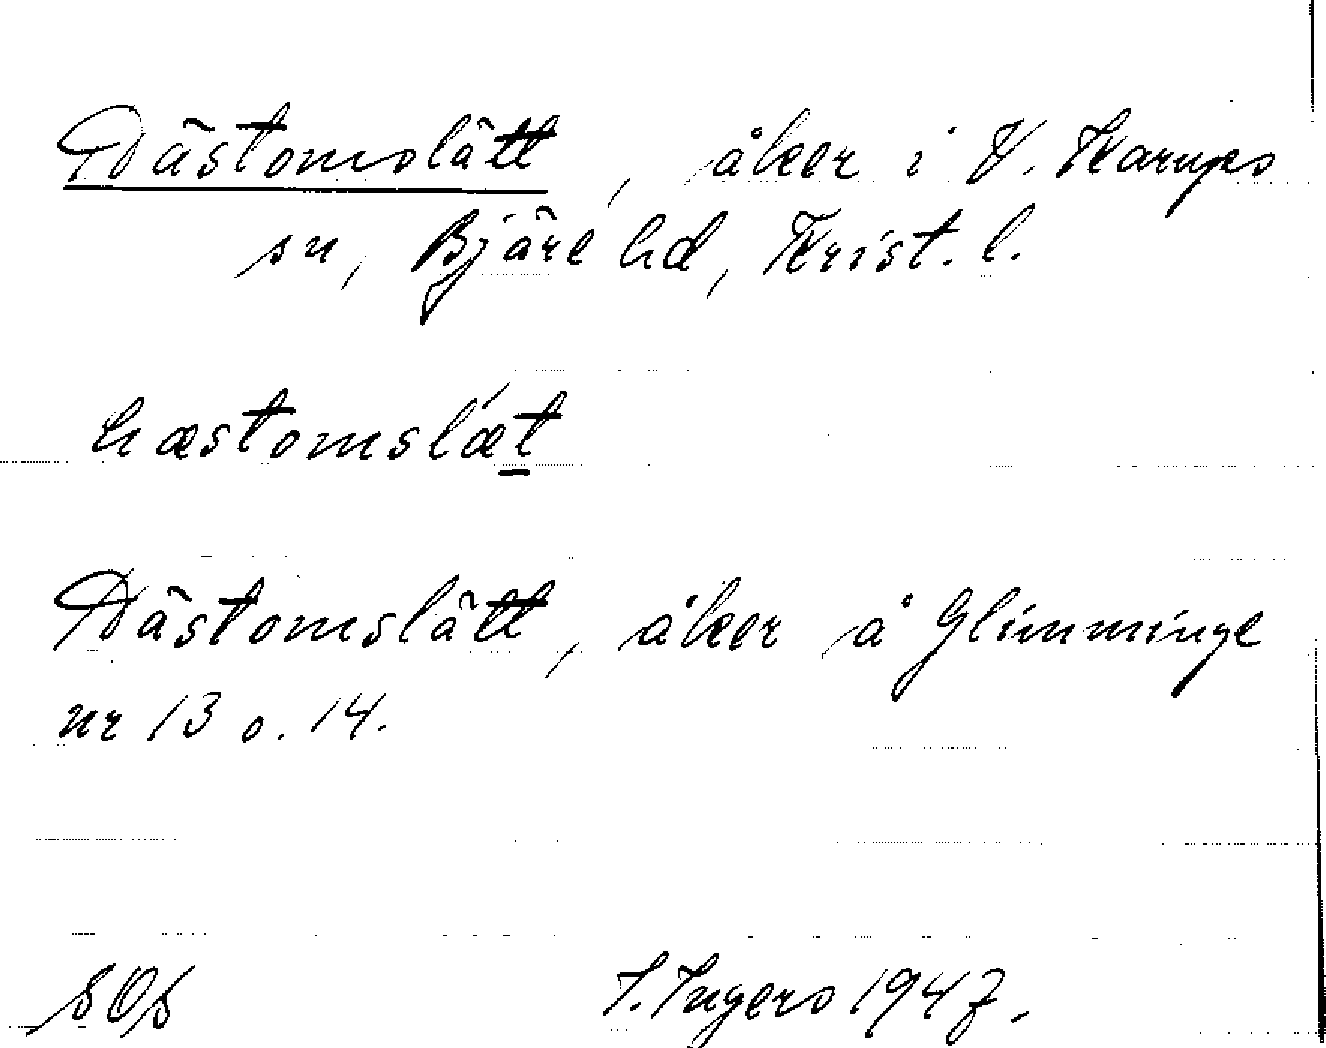 Hästomslätt, åker i V. Karups
sn, Bjäre hd, Krist. l.
hæstomslǽt
Hästomslätt, åker å Glimminge
nr 13 o. 14.
SOS
I. Ingers 1947.